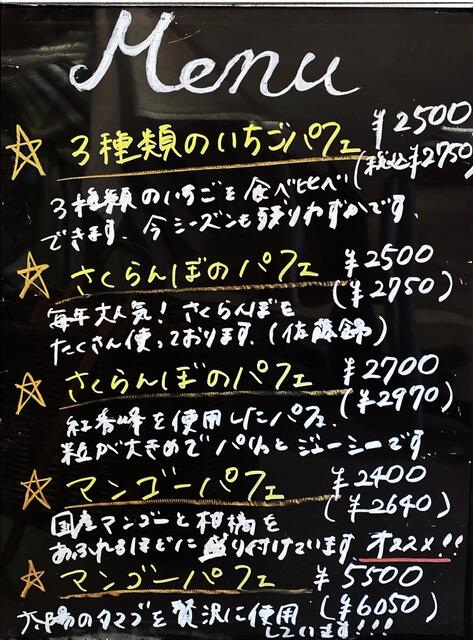 Menu
☆ 3種類のいちごパフェ ¥2500
(税込¥2750)
3種類のいちごを食べ比べ
できます。今シーズンも残りわずかです。
☆ さくらんぼのパフェ ¥2500
(¥2750)
毎年大人気！さくらんぼを
たくさん使っております。(佐藤錦)
☆ さくらんぼのパフェ ¥2700
(¥2970)
紅秀峰を使用したパフェ。
粒が大きめでパリッとジューシーです
☆ マンゴーパフェ ¥2400
(¥2640)
国産マンゴーと柑橘を
あふれるほどに盛り付けています。オススメ!!
☆ マンゴーパフェ ¥5500
(¥6050)
太陽のタマゴを贅沢に使用
しています!!!